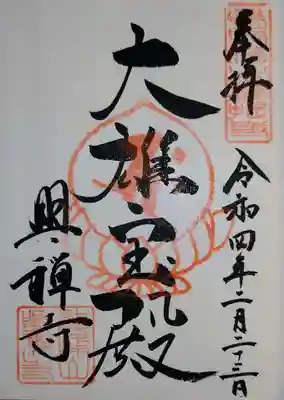 奉拝
令和四年二月二十三日
大雄宝殿
興禅寺